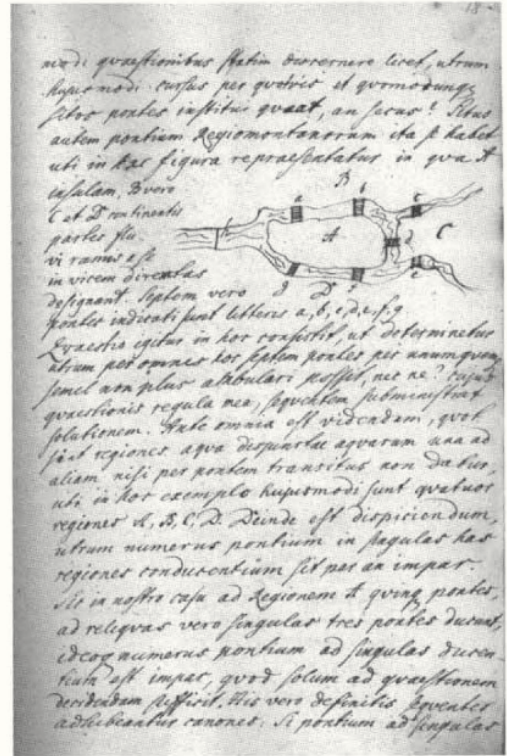 18.
modi quaestionibus statim discernere licet, utrum
hujusmodi cursus per quotvis et quomodocunq
sitos pontes institui queat, an secus? Situs
autem pontium Regiomontanorum ita se habet
uti in hac figura repraesentatur in qua A
insulam, B vero
C et D continentis
partes flu-
vi ramis a se
in vicem diremtas
designant. Septem vero
pontes indicati sunt litteris a, b, c, d, e, f, g
a
B
b
c
A
d
C
g
D
f
e
Quaestio igitur in hoc consistit, ut determinetur
utrum per omnes hos septem pontes per unumquemq
semel non plus ambulari possit, nec ne? cujus
quaestionis regula mea, sequentem subministrat
solutionem. Ante omnia est videndum, quot
sint regiones aqua disjunctae quarum una ad
aliam nisi per pontem transitus non datur,
uti in hoc exemplo hujusmodi sunt quatuor
regiones A, B, C, D. Deinde est dispiciendum,
utrum numerus pontium in singulas has
regiones conducentium sit par an impar.
Sic in nostro casu ad Regionem A quinq pontes,
ad reliquas vero singulas tres pontes ducunt,
ideoq numerus pontium ad singulas ducen-
tium est impar, quod solum ad quaestionem
decidendam sufficit. His vero definitis sequentes
adhibeantur canones: Si pontium ad singulas